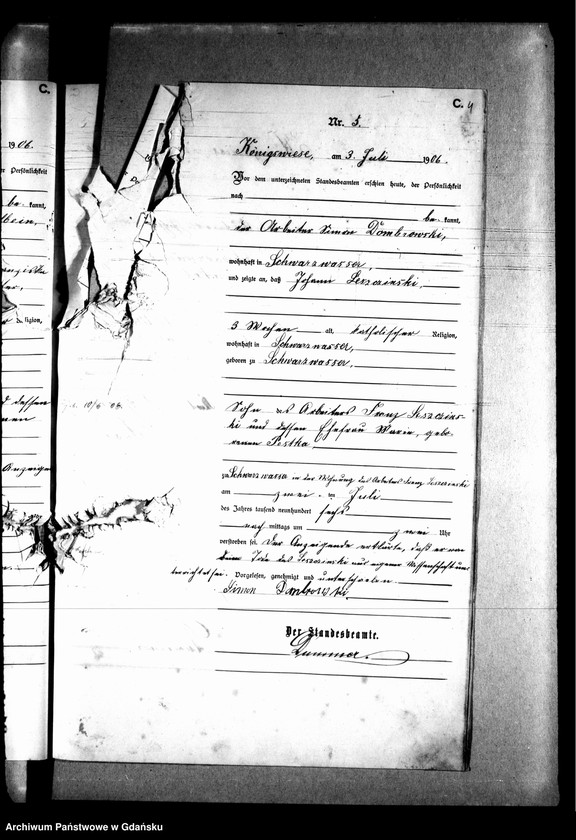 C.
1906.
der Persönlichkeit
be kannt,
Religion,
d dessen
Anzeigen
C. 4
Nr. 5.
Königswiese, am 3. Juli 1906.
Vor dem unterzeichneten Standesbeamten erschien heute, der Persönlichkeit
nach
be kannt,
der Arbeiter Simon Dombrowski,
wohnhaft in Schwarzwasser,
und zeigte an, daß Johann Leszczinski,
3 Wochen alt, katholischer Religion,
wohnhaft in Schwarzwasser,
geboren zu Schwarzwasser,
Sohn des Arbeiters Franz Leszczins-
ki und dessen Ehefrau Marie, gebo-
renen Pestka
zu Schwarzwasser in der Wohnung des Arbeiters Franz Leszczinski
am zwei - ten Juli
des Jahres tausend neunhundert sechs
nach mittags um zwei Uhr
verstorben sei. Der Anzeigende erklärte, daß er von
dem Tode des Leszczinski aus eigener Wissenschaft unter
richtet sei. Vorgelesen, genehmigt und unterschrieben
Simon Dombrowski.
Der Standesbeamte.
Archiwum Państwowe w Gdańsku